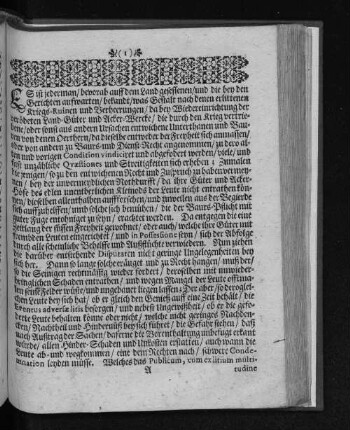 (1)
ES ist jederman / bevorab auff dem Land gesessenen / und die bey den
Gerichten auffwarten / bekandt / was Gestalt nach denen erlittenen
Kriegs-Ruinen und Verheerungen / da bey Wiedereinrichtung der
verödeten Land-Güter und Acker-Wercke / die durch den Krieg vertrie-
bene / oder sonst aus andern Ursachen entwichene Unterthanen und Bau-
ren von denen Oertern / da dieselbe entweder der Freyheit sich anmassen /
oder von andern zu Baurs- und Dienst-Recht angenommen / zu dero al-
ten und vorigen Condition vindiciret und abgefodert werden / viele / und
fast unzählbare Quæstiones und Streitigkeiten sich erheben: Zumalen
die jenigen / so zu den entwichenen Recht und Zuspruch zu haben vermey-
nen / bey der unvermeidlichen Nothdurfft / da ihre Güter und Acker-
Höfe des edlen unentbehrlichen Kleinods der Leute nicht entrathen kön-
nen / dieselben allenthalben auffforschen / und zuweilen aus der Begierde
sich auffzuhelffen / und solche sich bemühen / die der Baurs-Pflicht mit
guter Fuge entohniget zu seyn / erachtet werden. Da entgegen die eine
Zeitlang der süssen Freyheit gewohnet / oder auch / welche ihre Güter mit
frembden Leuten eingerichtet / und in Possessione seyn / sich der Abfolge
durch alle scheinliche Behülffe und Ausflüchte verwiedern. Nun ziehen
die darüber entstehende Disputaten nicht geringe Ungelegenheiten bey
sich her. Dann so lange solche
der so die Seinigen rechtmässig wieder fordert / derselben mit unwieder-
bringlichen Schaden entrathen / und wegen Mangel der Leute offtma-
len seine Felder wüste / und ungebauet liegen lassen: Der aber / so deroglei-
chen Leute bey sich hat / ob er gleich den Genieß auff eine Zeit behält / die
Eventus adversæ litis besorgen / und nebest Ungewißheit / ob er die gefo-
derte Leute behalten könne oder nicht / welche nicht geringes Nachden-
cken / Nachtheil und Hindernüß bey sich führet / die Gefahr stehen / daß
nach Außtrag der Sachen / daferne die Vorenthaltung unbefugt erkant
würde / allen Hinder-Schaden und Unkosten erstatten / auch wann die
Leute ab- und wegkommen / eine dem Rechten nach / schwere Conde-
mnation leyden müsse. Welches das Publicum, cum exitium multi-
A tudine